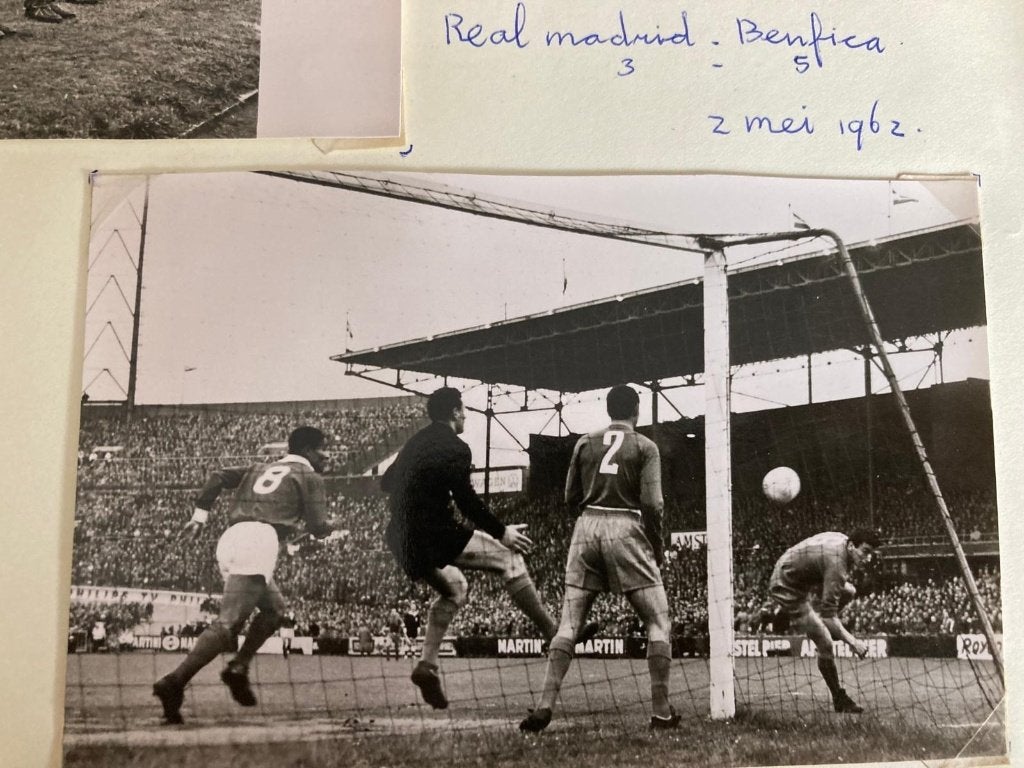 Real madrid - Benfica
3 - 5
2 mei 1962.
8
2
AMST
MARTIN MARTIN
AMSTEL BIER AMSTEL BIER
ROY